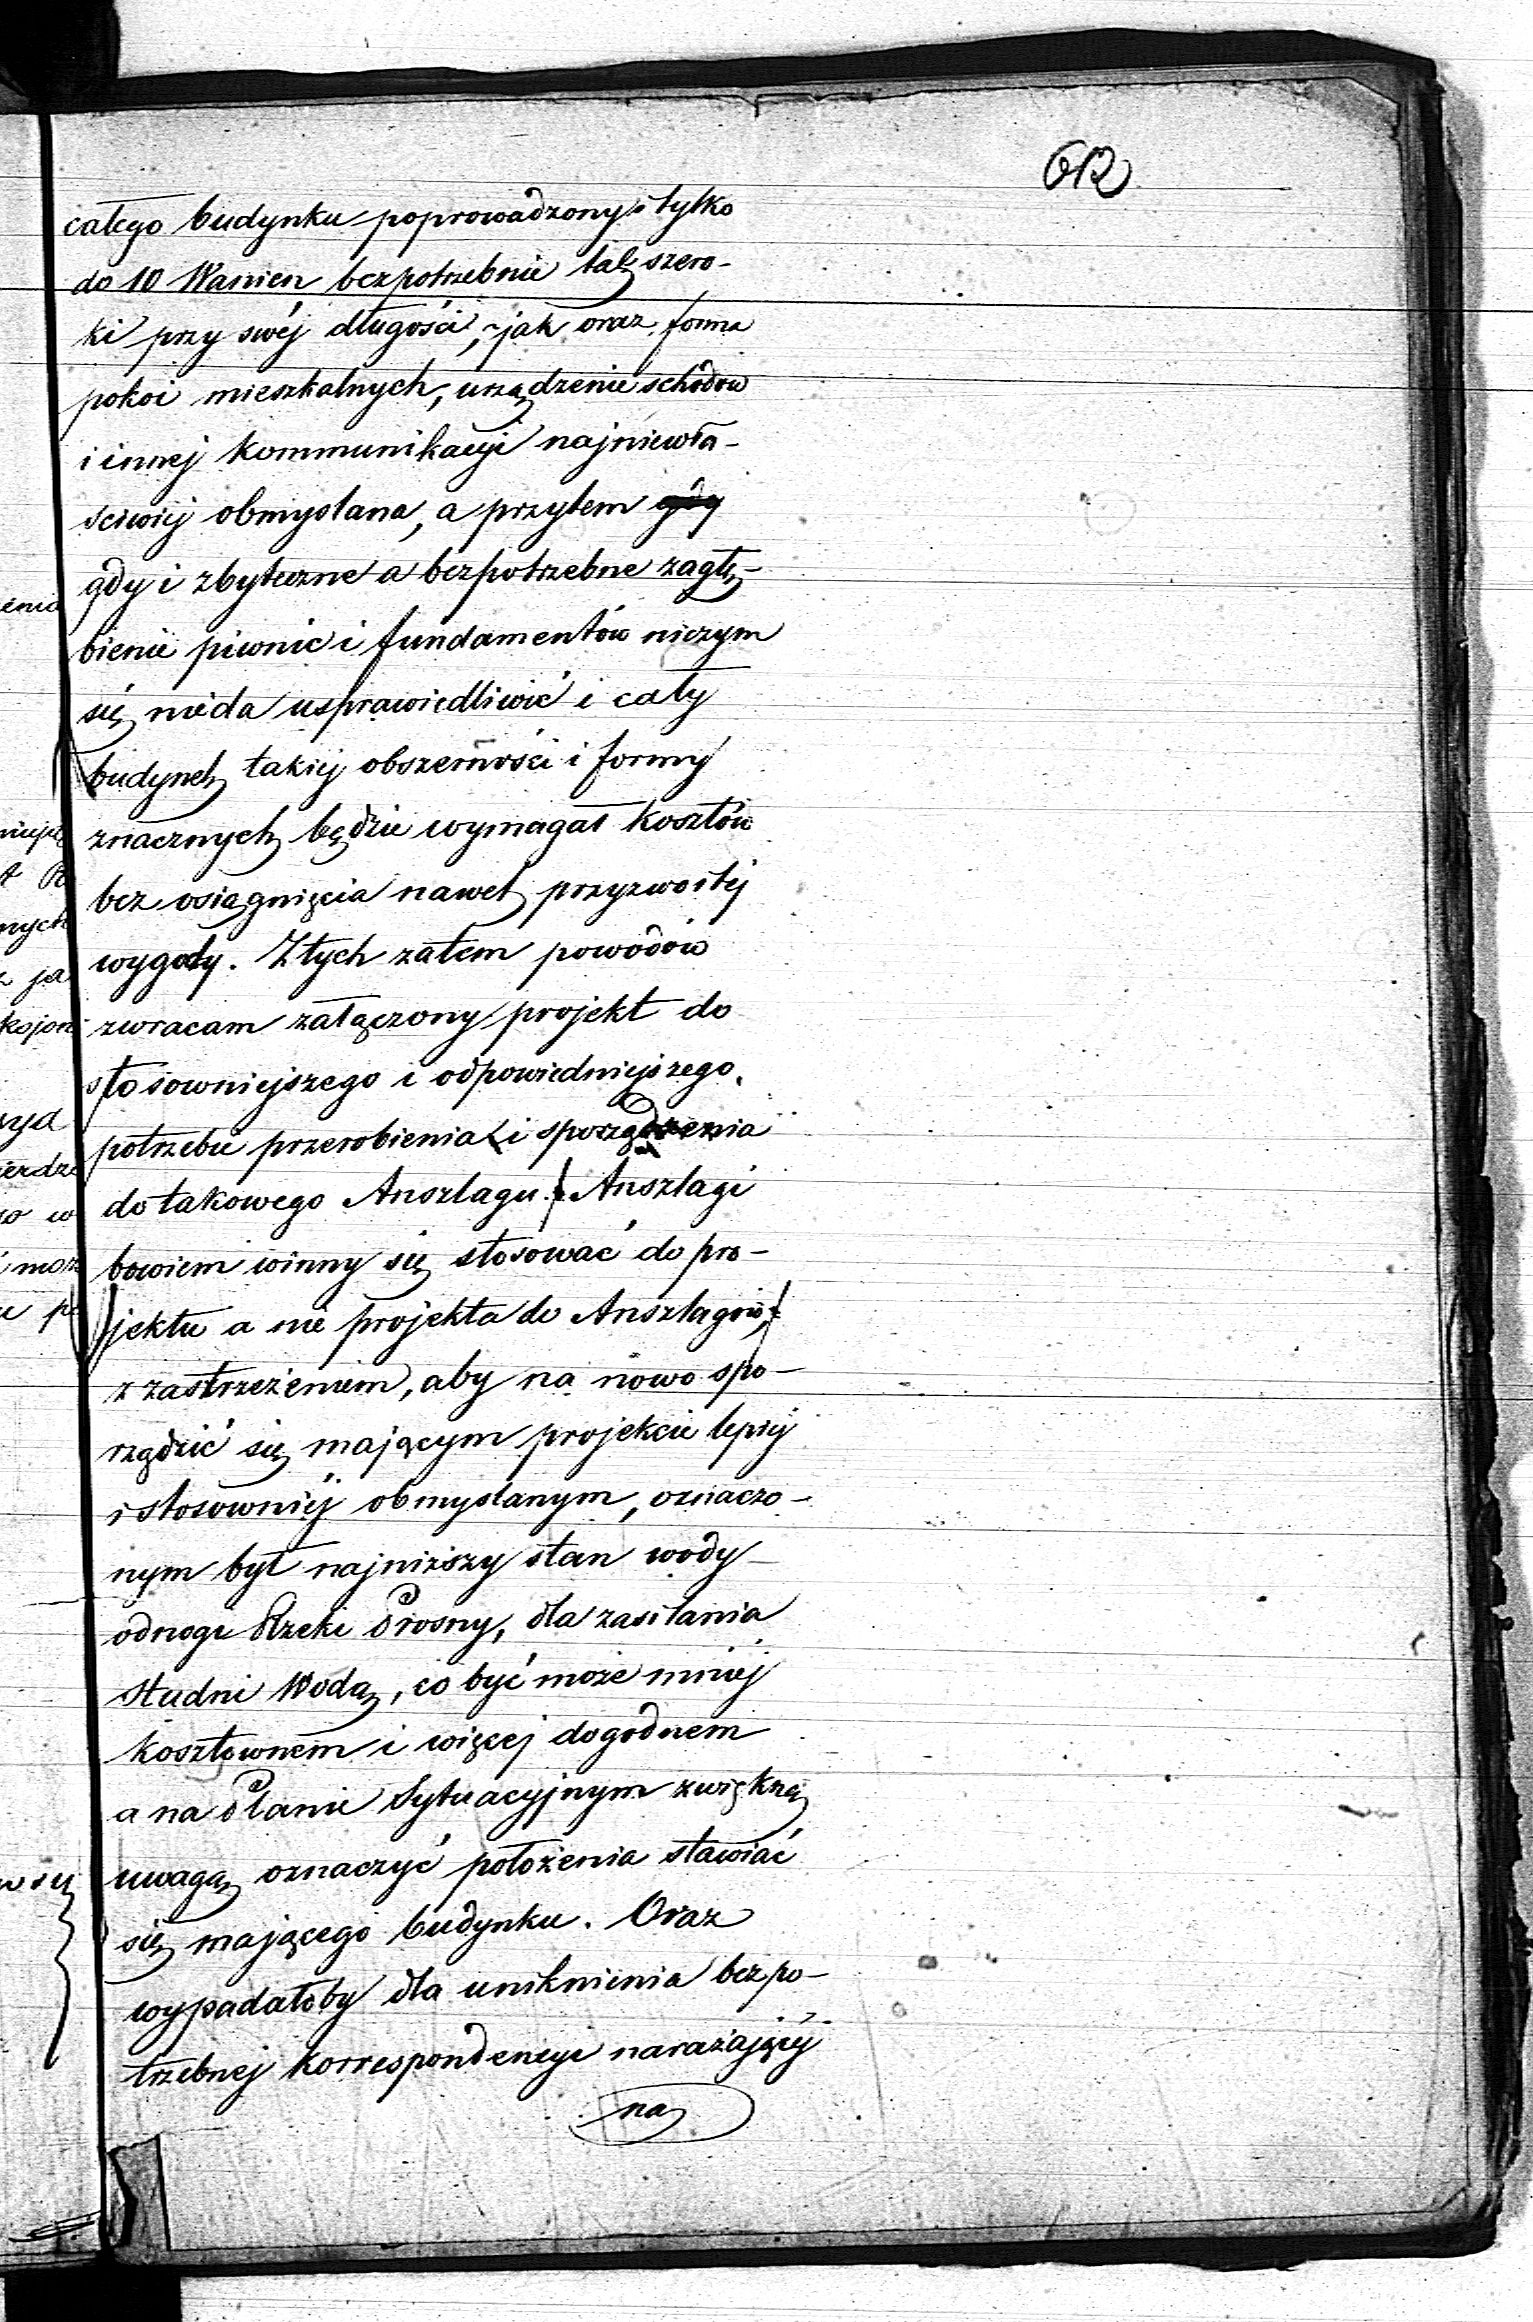 612
całego budynku poprowadzony i tylko
do 10 Wanien bezpotrzebnie tak szero-
ki przy swéj długości, jak oraz forma
pokoi mieszkalnych, urządzenie schodów
i innej kommunikacyi najniewła-
sciwiej obmyslana, a przytem gdy
gdy i zbyteczne a bezpotrzebne zagłę-
bienie piwnic i fundamentów niczym
się nieda usprawiedliwić i cały
budynek takiej obszerności i formy
znacznych będzie wymagał kosztów
bez osiągnięcia nawet przyzwoitej
wygody. Z tych zatem powodów
zwracam załączony projekt do
stosowniejszego i odpowiedniejszego
potrzebie przerobienia i sporządzenia
do takowego Anszlagu. Anszlagi
bowiem winny się stosować do pro-
jektu a nie projekta do Anszlagów,
z zastrzeżeniem, aby na nowo spo-
rządzić się mającym projekcie lepiej
i stosowniej obmyslanym, oznaczo-
nym był najniższy stan wody
odnogi Rzeki Prosny, dla zasilania
studni Wodą, co być może mniej
kosztownem i więcej dogodnem
a na Planie Sytuacyjnym zwiększą
uwagą oznaczyć położenia stawiać
się mającego budynku. Oraz
wypadałoby dla uniknienia bezpo-
trzebnej korrespondencyi narażającéj
na